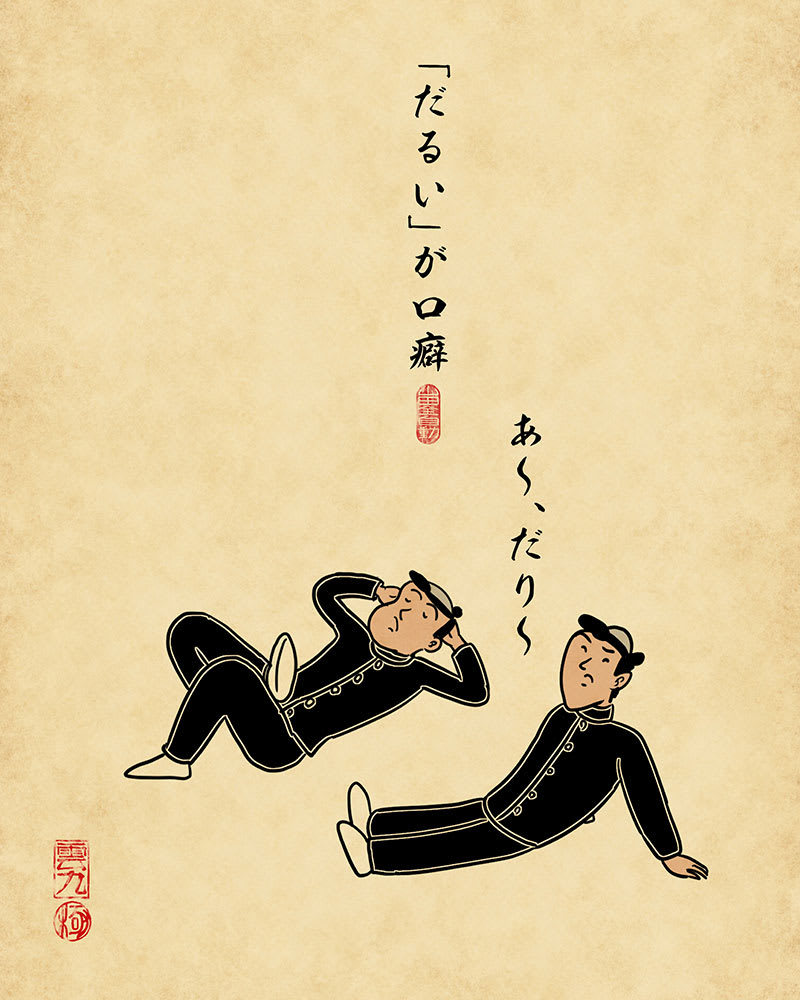 「だるい」が口癖
あ〜、だり〜